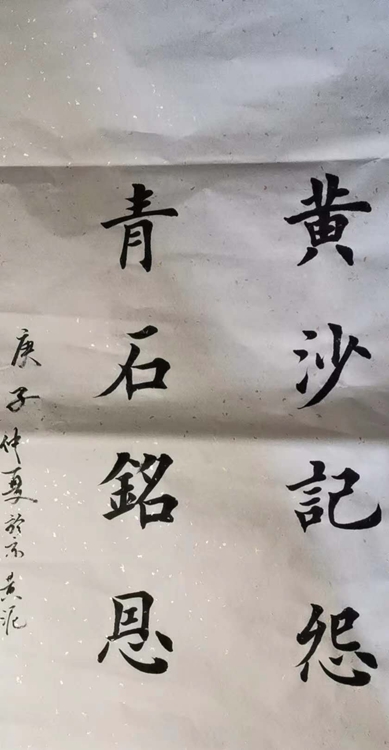 黄沙記怨
青石銘恩
庚子仲夏於京黄泥